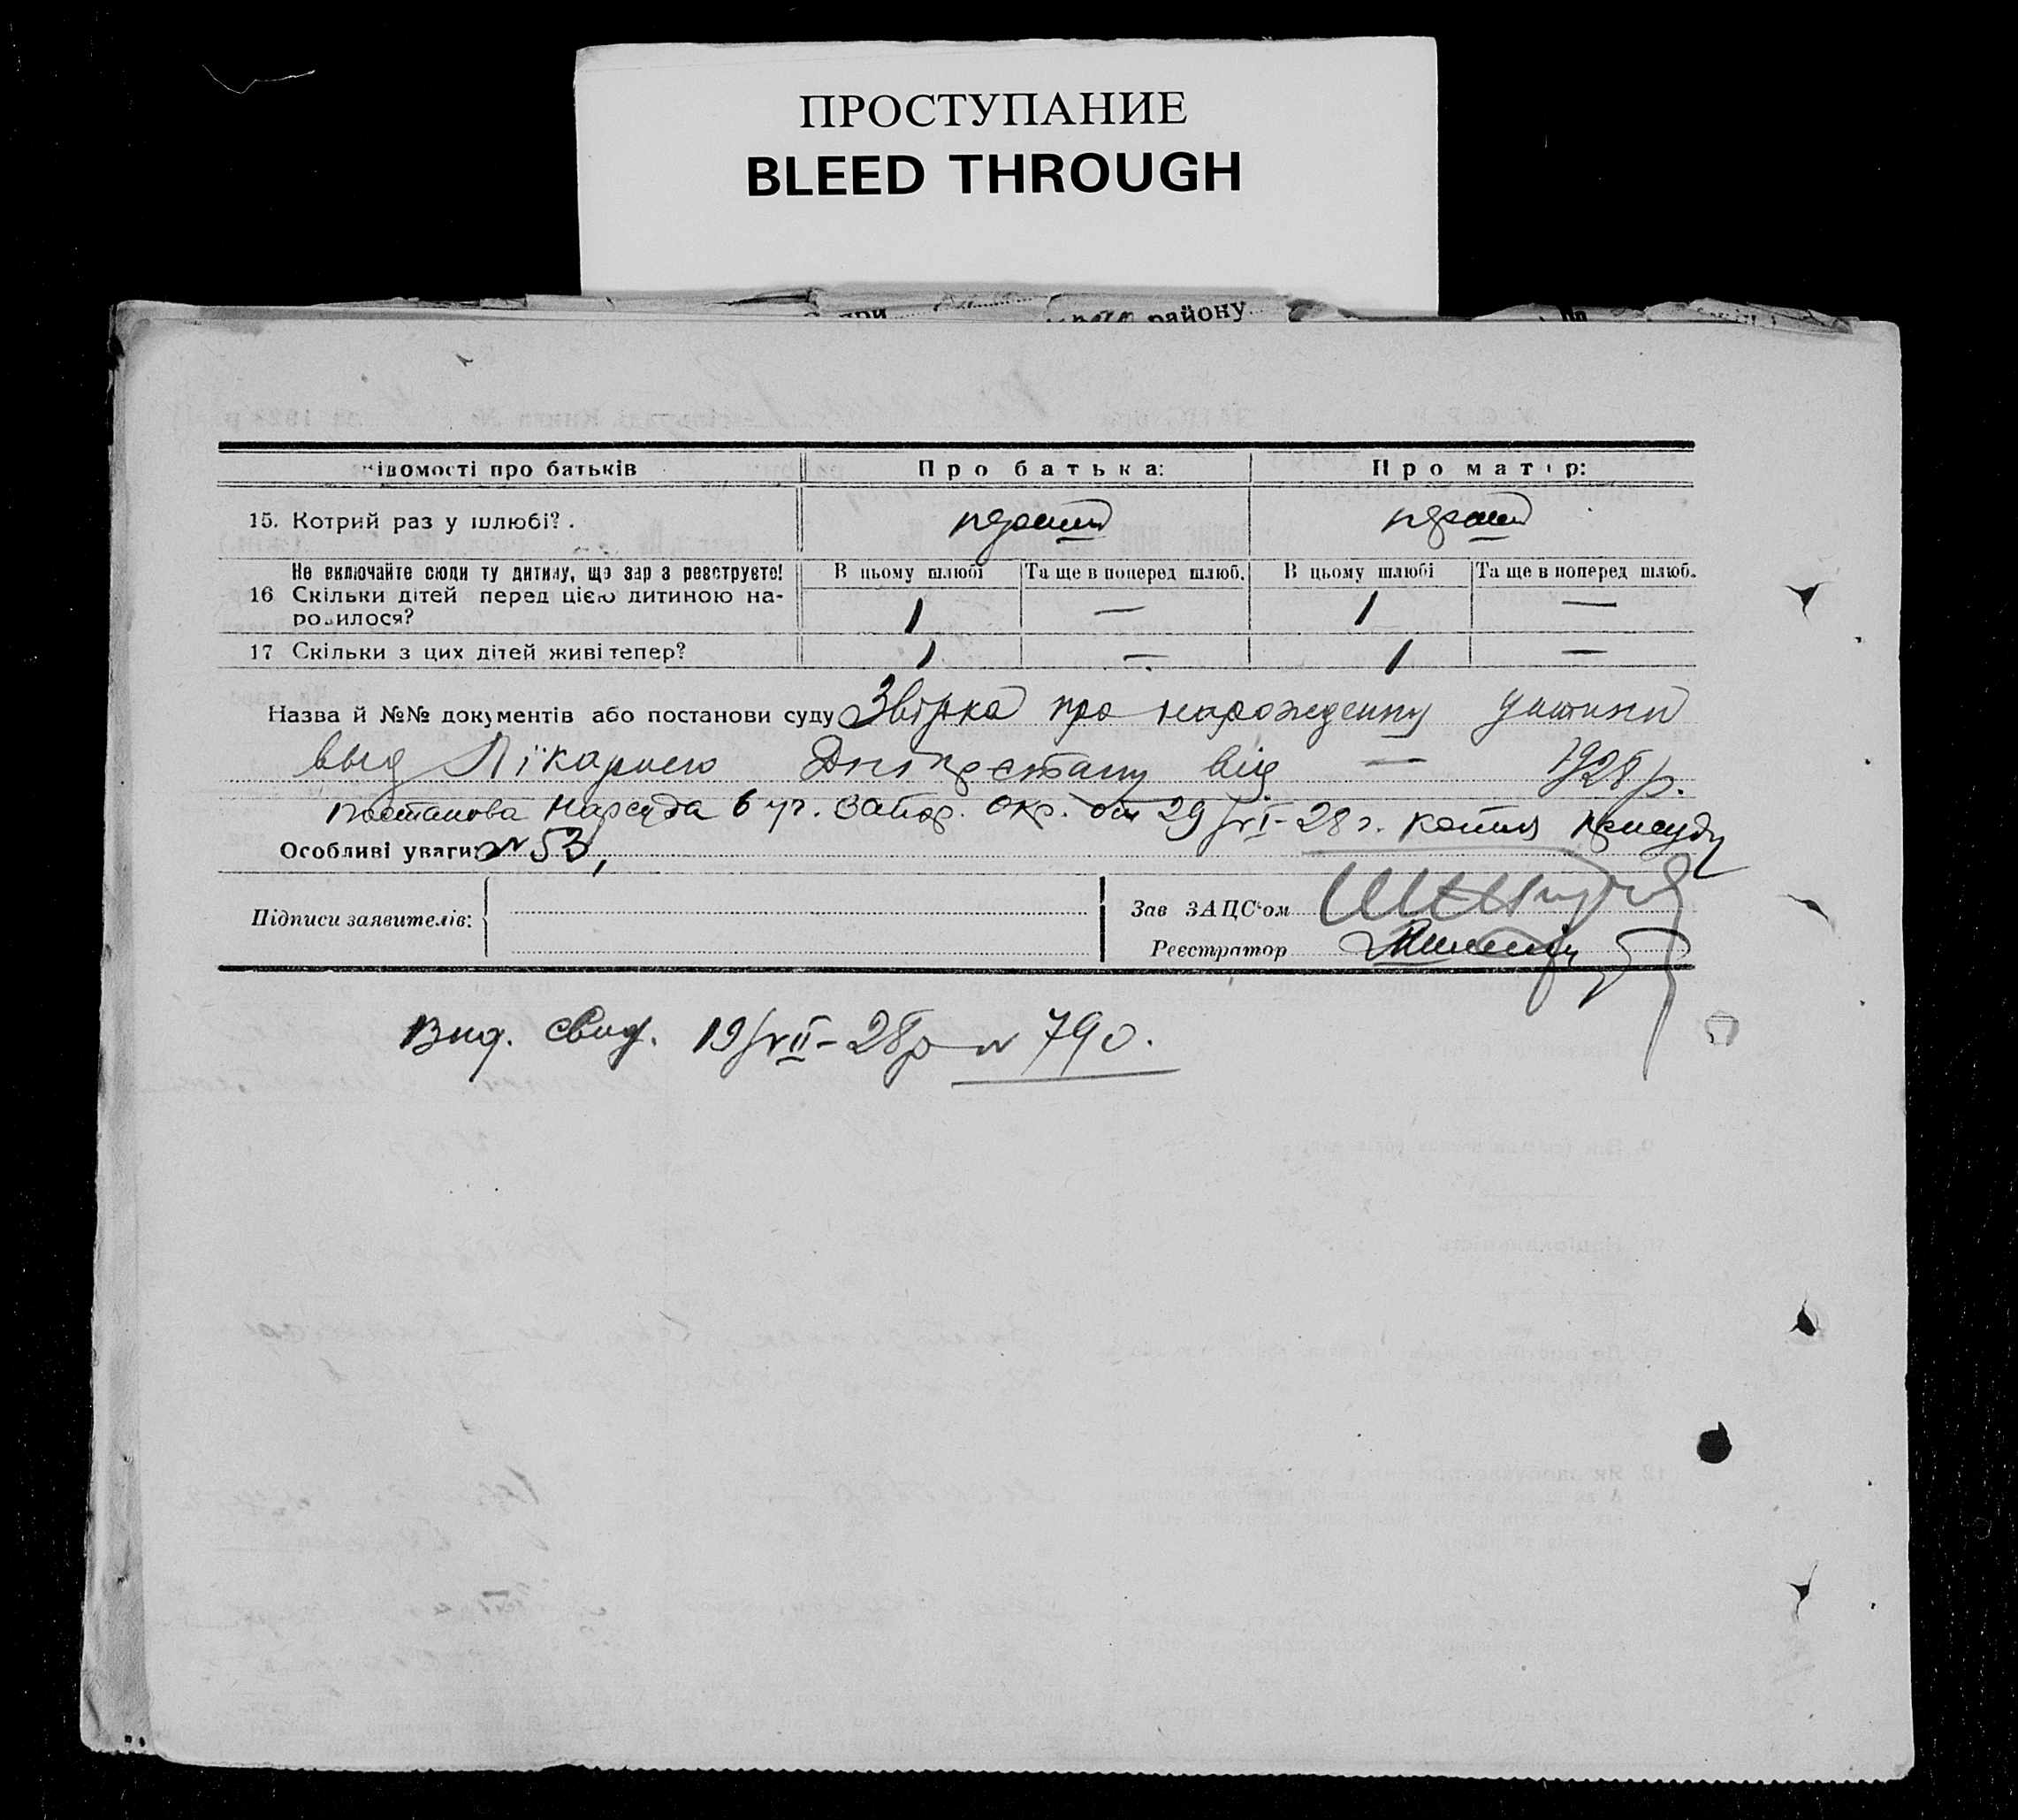 ПРОСТУПАНИЕ
BLEED THROUGH
району
івомості про батьків
Про батька:
Про матір:
15. Котрий раз у шлюбі?
перший
перший
Не включайте сюди ту дитину, що зараз реєструєте!
В цьому шлюбі
Та ще в поперед шлюб.
В цьому шлюбі
Та ще в поперед шлюб.
16 Скільки дітей перед цією дитиною на-
родилося?
1
—
1
—
17 Скільки з цих дітей живі тепер?
1
—
1
—
Назва й №№ документів або постанови суду Звірка про нарождення дитини
выд Лікарнею від — 1928 р.
Постанова Нарсуда 6 уч. Запор. окр. от 29/VI-28 г. копия присуду
Особливі уваги: № 53,
Підписи заявителів:
Зав ЗАЦС'ом
Реєстратор
Вид. свид. 19/VII-28 р № 790.